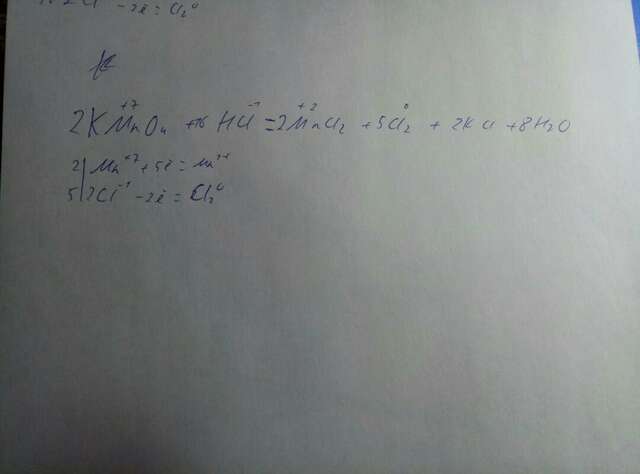 2Cl⁻¹ -2ē = Cl₂⁰
2KMn⁺⁷O₄ +16 HCl⁻¹ = 2Mn⁺²Cl₂ + 5Cl₂⁰ + 2KCl + 8H₂O
2| Mn⁺⁷ + 5ē = Mn⁺²
5| 2Cl⁻¹ - 2ē = Cl₂⁰